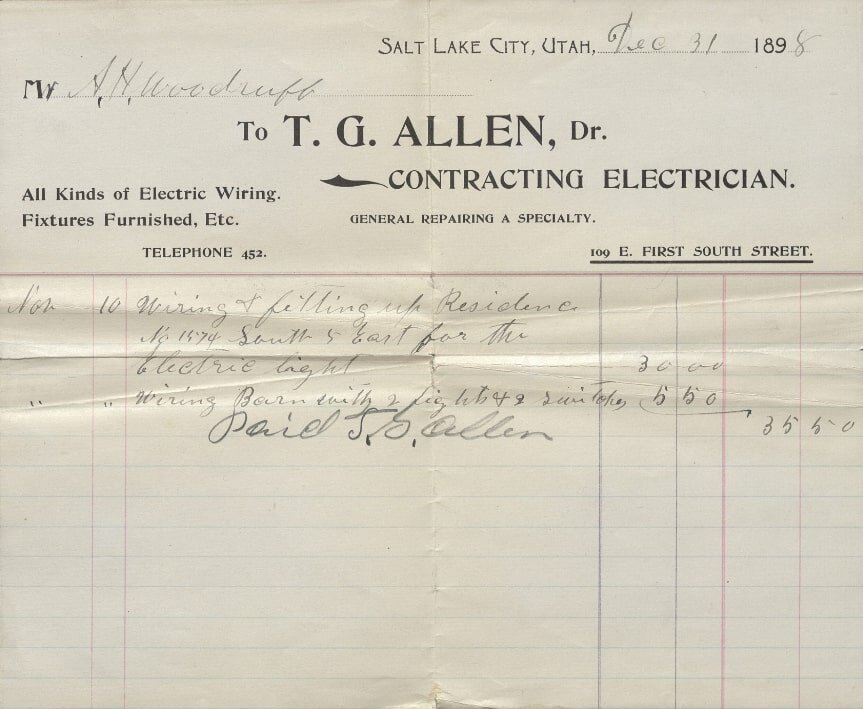 SALT LAKE CITY, UTAH, Dec 31 1898
Mr A. H. Woodruff
To T. G. ALLEN, Dr.
CONTRACTING ELECTRICIAN.
All Kinds of Electric Wiring.
Fixtures Furnished, Etc.
GENERAL REPAIRING A SPECIALTY.
TELEPHONE 452.
109 E. FIRST SOUTH STREET.
Nov 10 Wiring & fitting up Residence
No 1574 South 5 East for the
Electric light 30 00
" " Wiring Barn with 2 lights & 2 switches 5 50
35 50
Paid T. G. Allen